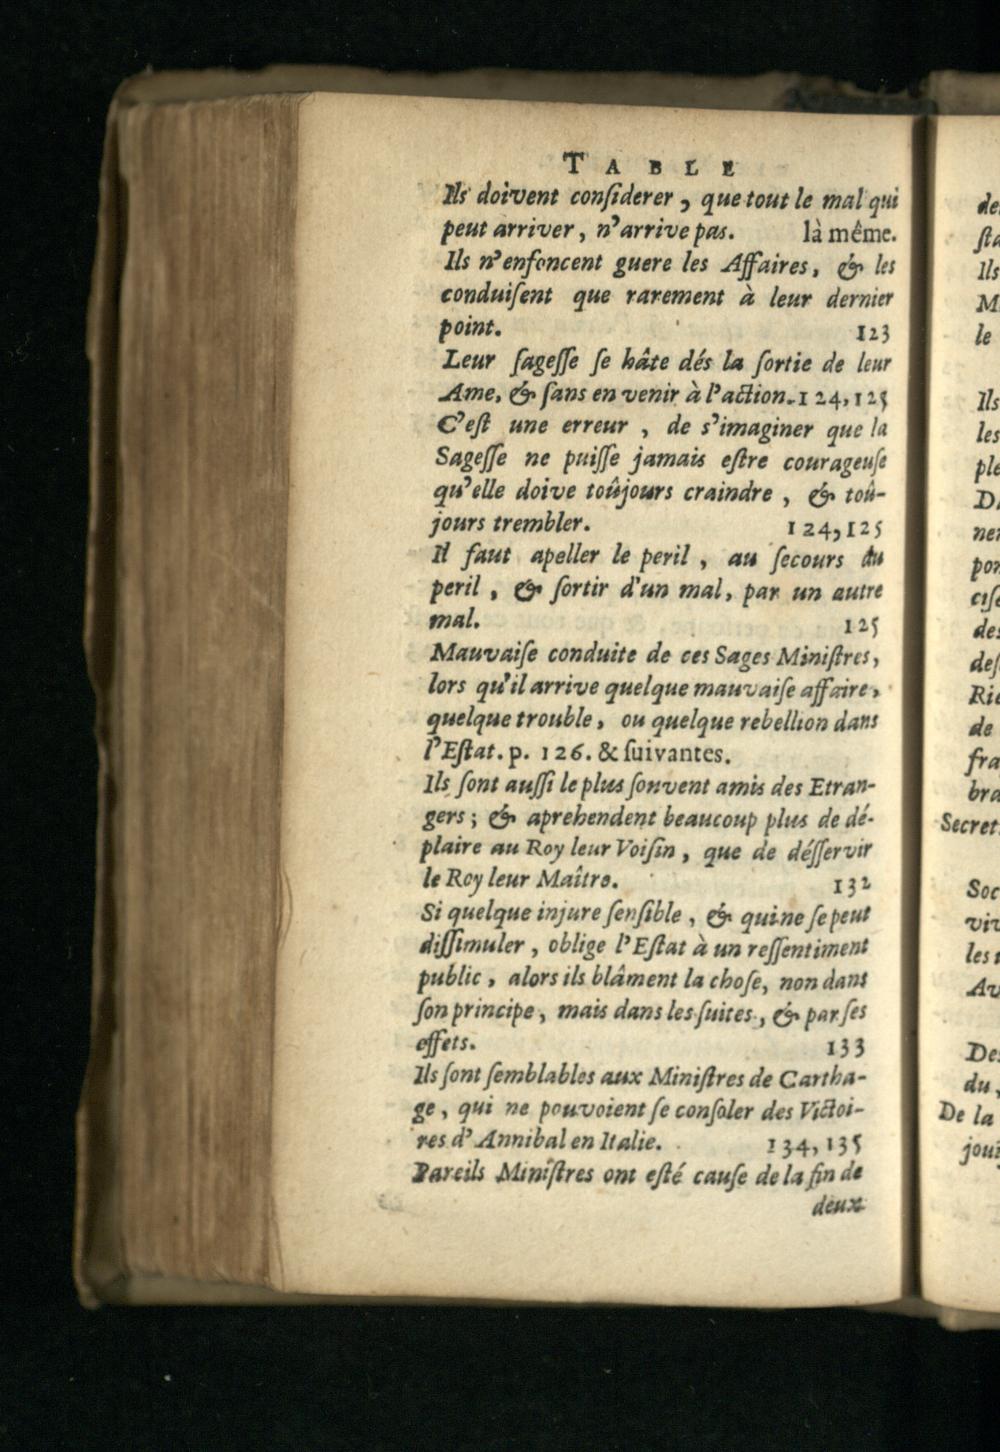 TABLE
Ils doivent conſiderer, que tout le mal qui
peut arriver, n'arrive pas. là même.
Ils n'enfoncent guere les Affaires, & les
conduiſent que rarement à leur dernier
point. 123
Leur ſageſſe ſe hâte dés la ſortie de leur
Ame, & ſans en venir à l'action. 124, 125
C'eſt une erreur, de s'imaginer que la
Sageſſe ne puiſſe jamais eſtre courageuſe
qu'elle doive toûjours craindre, & toû-
jours trembler. 124, 125
Il faut apeller le peril, au ſecours du
peril, & ſortir d'un mal, par un autre
mal. 125
Mauvaiſe conduite de ces Sages Miniſtres,
lors qu'il arrive quelque mauvaiſe affaire,
quelque trouble, ou quelque rebellion dans
l'Eſtat. p. 126. & ſuivantes.
Ils ſont auſſi le plus ſouvent amis des Etran-
gers; & aprehendent beaucoup plus de dé-
plaire au Roy leur Voiſin, que de déſſervir
le Roy leur Maître. 132
Si quelque injure ſenſible, & qui ne ſe peut
diſſimuler, oblige l'Eſtat à un reſſentiment
public, alors ils blâment la choſe, non dans
ſon principe, mais dans les ſuites, & par ſes
effets. 133
Ils ſont ſemblables aux Miniſtres de Cartha-
ge, qui ne pouvoient ſe conſoler des Victoi-
res d'Annibal en Italie. 134, 135
Pareils Miniſtres ont eſté cauſe de la fin de
deux
de
ſta
Ils
M
le
Ils
les
ple
D
ner
pon
ciſe
des
deſ
Ric
de
fra
bra
Secret
Soc
viv
les
Av
De
du,
De la
joui